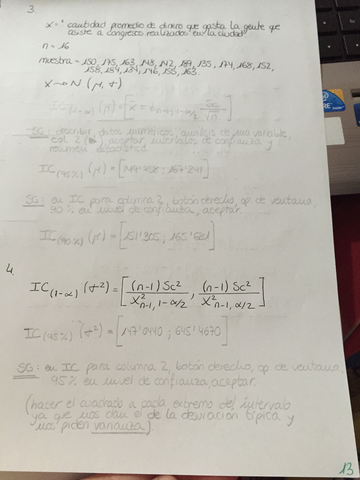 3.
x = "cantidad promedio de dinero que gasta la gente que
asiste a congresos realizados en la ciudad"
n = 16
muestra = 150, 175, 163, 148, 142, 189, 135, 174, 168, 152,
158, 184, 134, 146, 155, 163.
IC(1-α) (μ) = [x̄ ± t n-1, 1-α/2 Sc/√n]
SG: describir, datos numéricos, análisis de una variable,
col. 2 aceptar, intervalos de confianza y
resumen estadístico
IC(95%) (μ) =
SG: en IC para columna 2, botón derecho, op de ventana,
90% en nivel de confianza, aceptar.
IC(90%) (μ) = [151'305; 165'
4.
IC(1-α) (σ²) = [(n-1) Sc² / χ² n-1, 1-α/2 , (n-1) Sc² / χ² n-1, α/2]
IC(95%) (σ²) = [147'0440; 645'4670]
SG: en IC para columna 2, botón derecho, op de ventana,
95% en nivel de confianza aceptar.
(hacer el cuadrado a cada extremo del intervalo
ya que nos dan el de la desviación típica y
nos piden varianza)
13